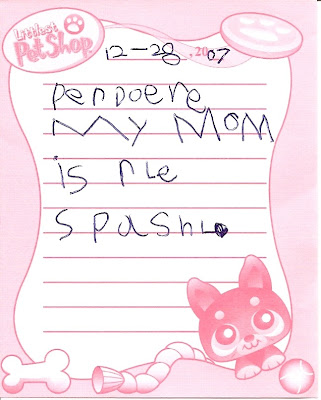 Littlest
PetShop
12-28 , 2007
Dendoere
My Mom
is rle
spashl